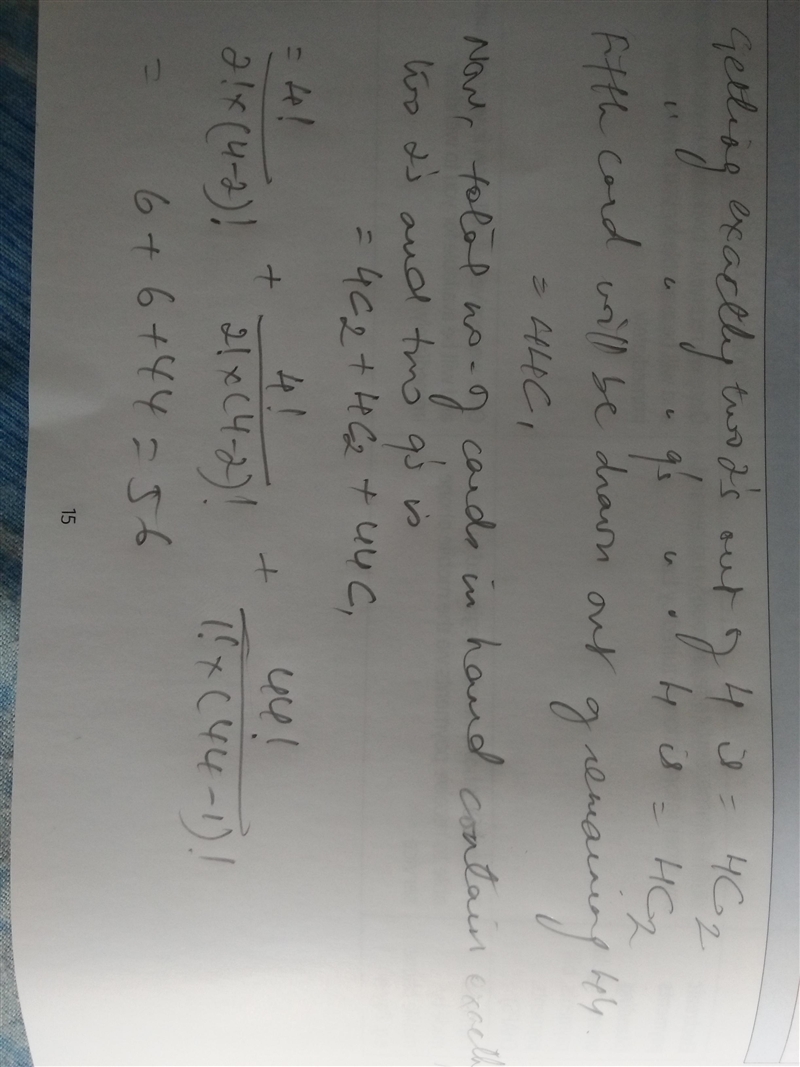 Getting exactly two 2's out of 4 is = 4C2
" " " 9's " " 4 is = 4C2
Fifth card will be drawn out of remaining 44.
= 44C1
Now, total no. of cards in hand contain exactly
two 2's and two 9's is
= 4C2 + 4C2 + 44C1
= 4!/2!×(4-2)! + 4!/2!×(4-2)! + 44!/1!×(44-1)!
= 6 + 6 + 44 = 56
15